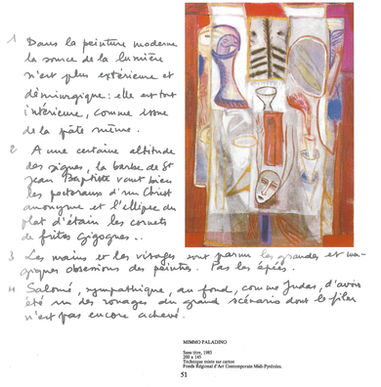 1 Dans la peinture moderne
la source de la lumière
n'est plus extérieure et
démiurgique: elle est tout
intérieure, comme issue
de la pâte même.
2 A une certaine altitude
des signes, la barbe de St
Jean Baptiste vaut bien
les pectoraux d'un Christ
anonyme et l'ellipse du
plat d'étain les cornets
de frites gigognes..
3 Les mains et les visages sont parmi les grandes et ma-
giques obsessions des peintres. Pas les épées.
4 Salomé, sympathique, au fond, comme Judas, d'avoir
été un des rouages du grand scénario dont le film
n'est pas encore achevé.
MIMMO PALADINO
Sans titre, 1983
200 x 145
Technique mixte sur carton
Fonds Régional d'Art Contemporain Midi-Pyrénées.
51